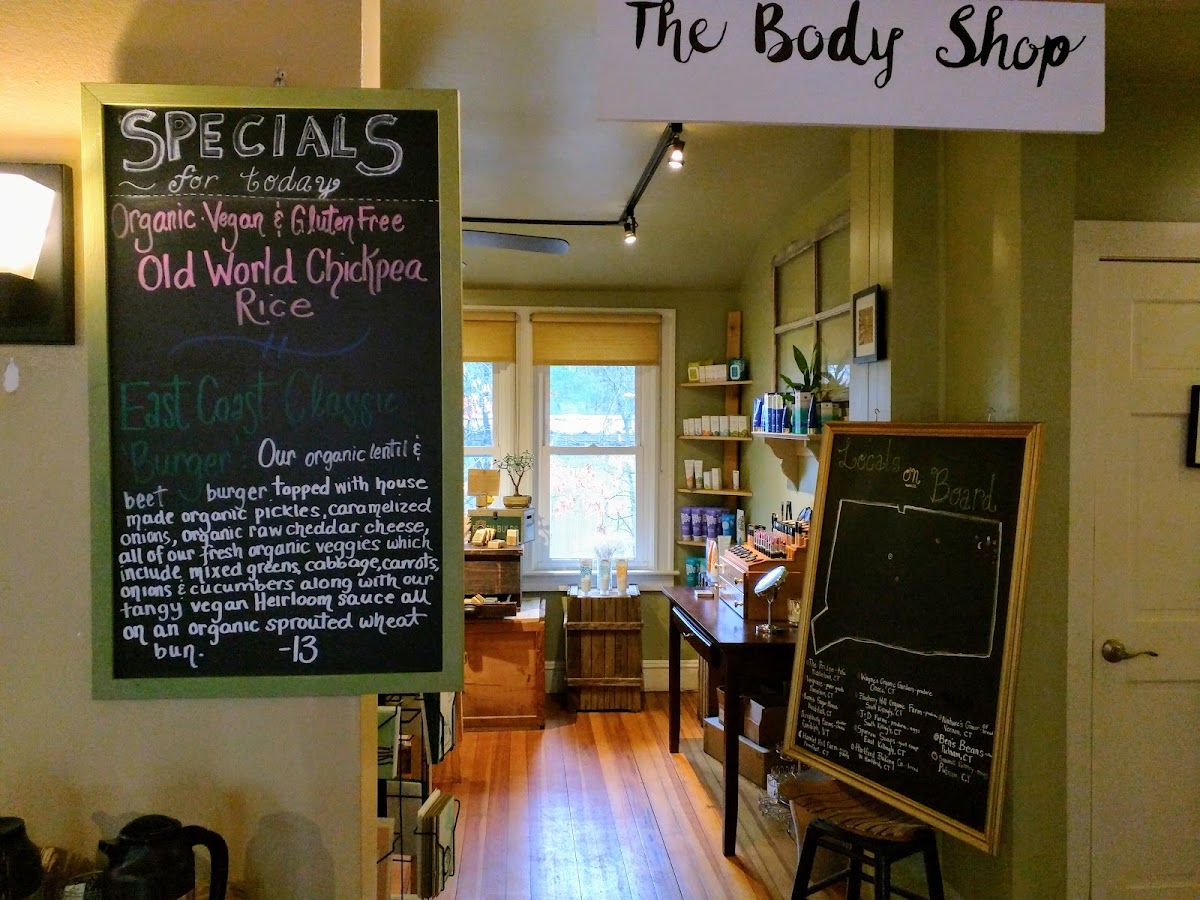 The Body Shop
SPECIALS
for today
Organic Vegan & Gluten Free
Old World Chickpea
Rice
East Coast Classic
Burger Our organic lentil &
beet burger topped with house
made organic pickles, caramelized
onions, organic raw cheddar cheese,
all of our fresh organic veggies which
include mixed greens, cabbage, carrots,
onions & cucumbers along with our
tangy vegan Heirloom sauce all
on an organic sprouted wheat
bun. -13
Locals
on Board
Wayne's Organic Gardens - produce
Oneco, CT
Hill Organic Farm
South Killingly, CT
Farms
South Killingly, CT
East Killingly, CT
Hartford Baking Co. - bread
W. Hartford, CT
Vernon, CT
Ben's Beans
Putnam, CT